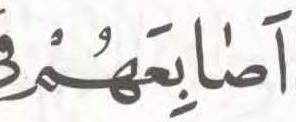 اَصٰابِعَهُمْ